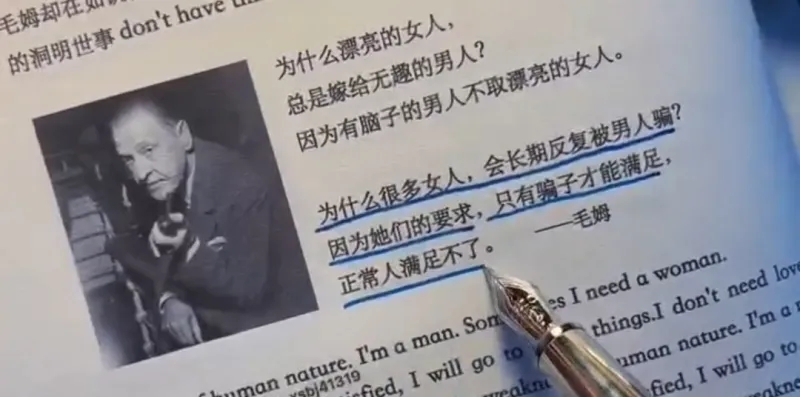 毛姆却在如
的洞明世事 don't have
为什么漂亮的女人,
总是嫁给无趣的男人?
因为有脑子的男人不取漂亮的女人。
为什么很多女人,会长期反复被男人骗?
因为她们的要求,只有骗子才能满足,
正常人满足不了。
——毛姆
es I need a woman.
human nature. I'm a man. Som things. I don't need love
sfied, I will go to human nature. I'm a
xsbj41319
sfied, I will go to